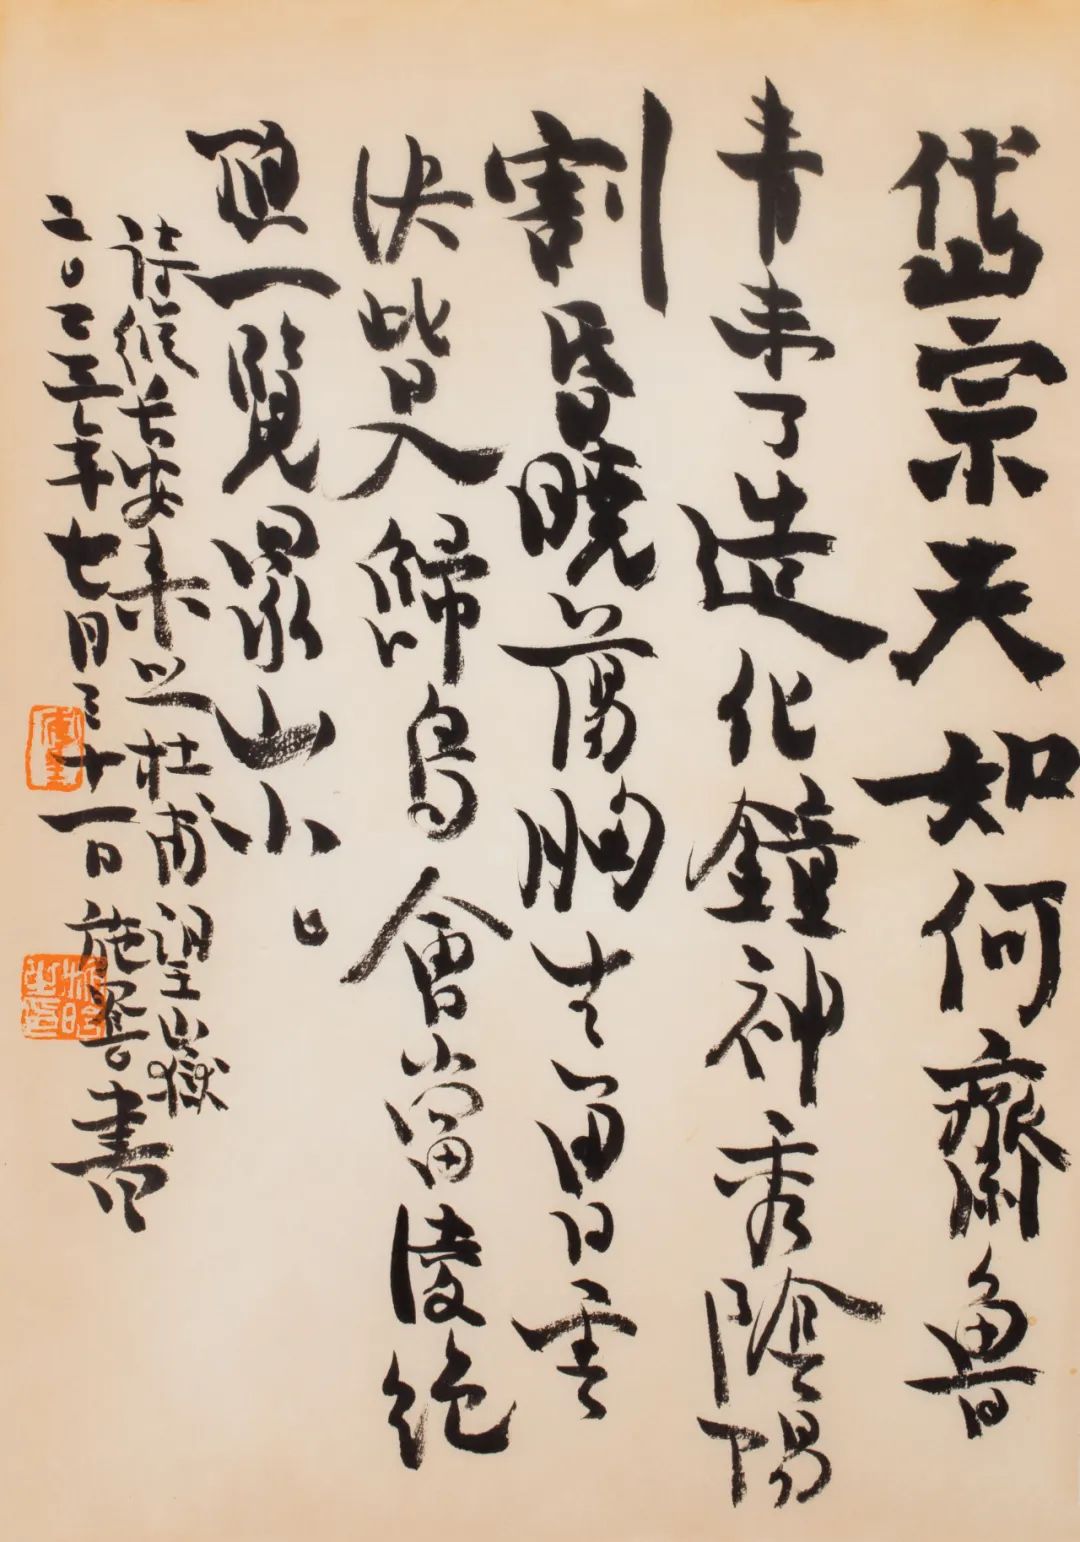 岱宗夫如何齊魯
青未了造化鐘神秀陰陽
割昏曉蕩胸生曾雲
決眥入歸鳥會當凌絕
頂一覽眾山小
詩從長安來之杜甫望嶽
二〇二三年七月三十一日施晗書